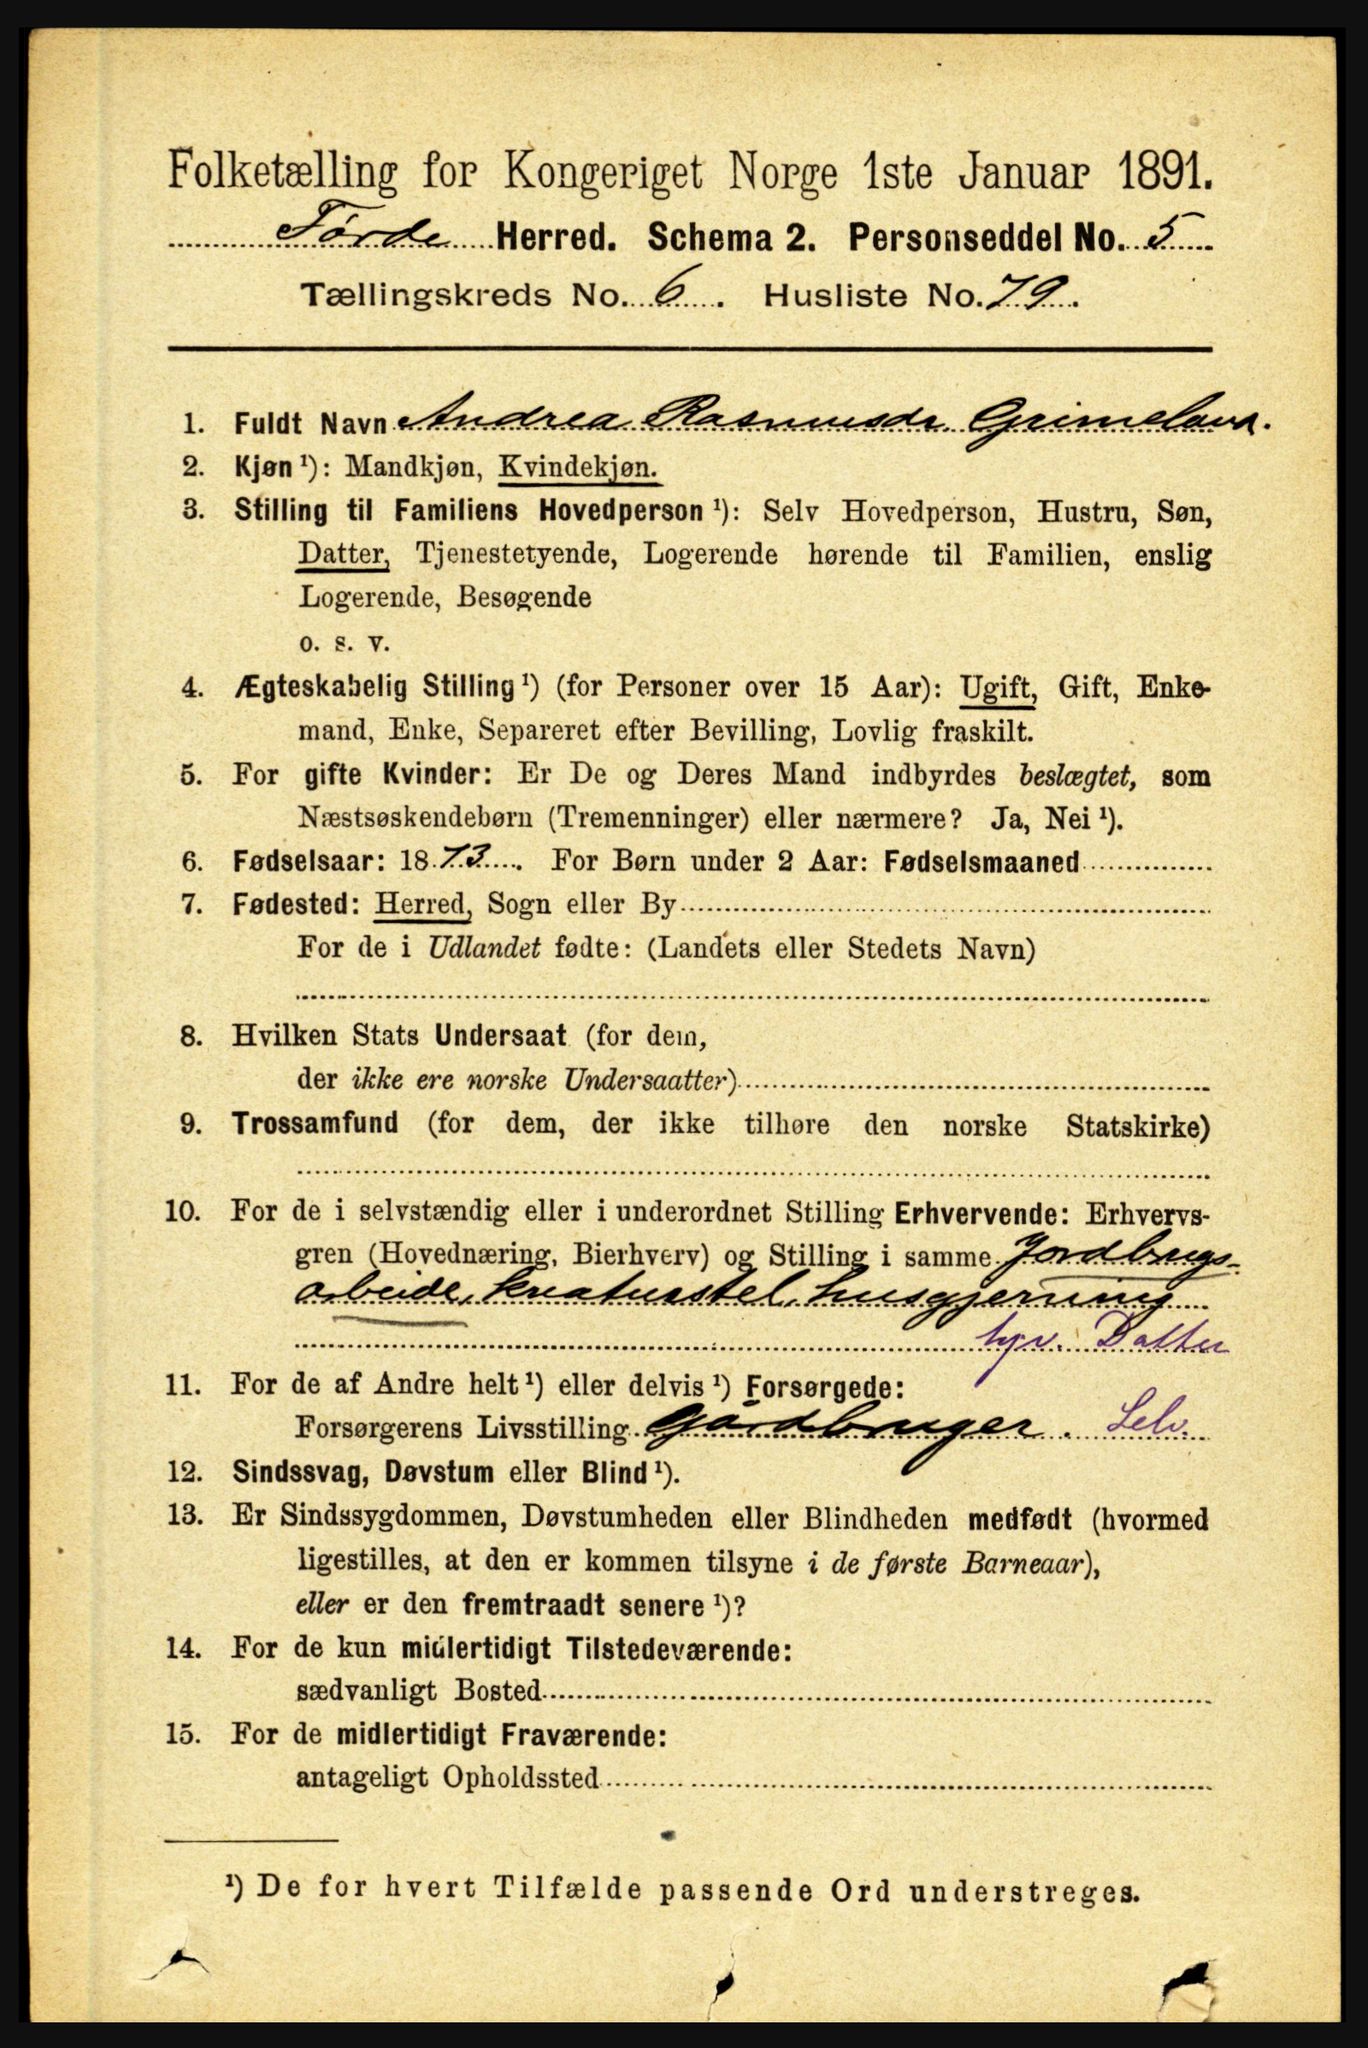 Folketælling for Kongeriget Norge 1ste Januar 1891.
Førde Herred. Schema 2. Personseddel No. 5
Tællingskreds No. 6. Husliste No. 79.
1. Fuldt Navn Andrea Rasmusdr. Grimeland.
2. Kjøn ¹): Mandkjøn, Kvindekjøn.
3. Stilling til Familiens Hovedperson ¹): Selv Hovedperson, Hustru, Søn,
Datter, Tjenestetyende, Logerende hørende til Familien, enslig
Logerende, Besøgende
o. s. v.
4. Ægteskabelig Stilling ¹) (for Personer over 15 Aar): Ugift, Gift, Enke-
mand, Enke, Separeret efter Bevilling, Lovlig fraskilt.
5. For gifte Kvinder: Er De og Deres Mand indbyrdes beslægtet, som
Næstsøskendebørn (Tremenninger) eller nærmere? Ja, Nei ¹).
6. Fødselsaar: 1873. For Børn under 2 Aar: Fødselsmaaned
7. Fødested: Herred, Sogn eller By
For de i Udlandet fødte: (Landets eller Stedets Navn)
8. Hvilken Stats Undersaat (for dem,
der ikke ere norske Undersaatter)
9. Trossamfund (for dem, der ikke tilhøre den norske Statskirke)
10. For de i selvstændig eller i underordnet Stilling Erhvervende: Erhvervs-
gren (Hovednæring, Bierhverv) og Stilling i samme Jordbrugs-
arbeide, kreaturstel, husgjerning
hjv. Datter
11. For de af Andre helt ¹) eller delvis ¹) Forsørgede:
Forsørgerens Livsstilling Gårdbruger. Selv.
12. Sindssvag, Døvstum eller Blind ¹).
13. Er Sindssygdommen, Døvstumheden eller Blindheden medfødt (hvormed
ligestilles, at den er kommen tilsyne i de første Barneaar),
eller er den fremtraadt senere ¹)?
14. For de kun midlertidigt Tilstedeværende:
sædvanligt Bosted
15. For de midlertidigt Fraværende:
antageligt Opholdssted
¹) De for hvert Tilfælde passende Ord understreges.